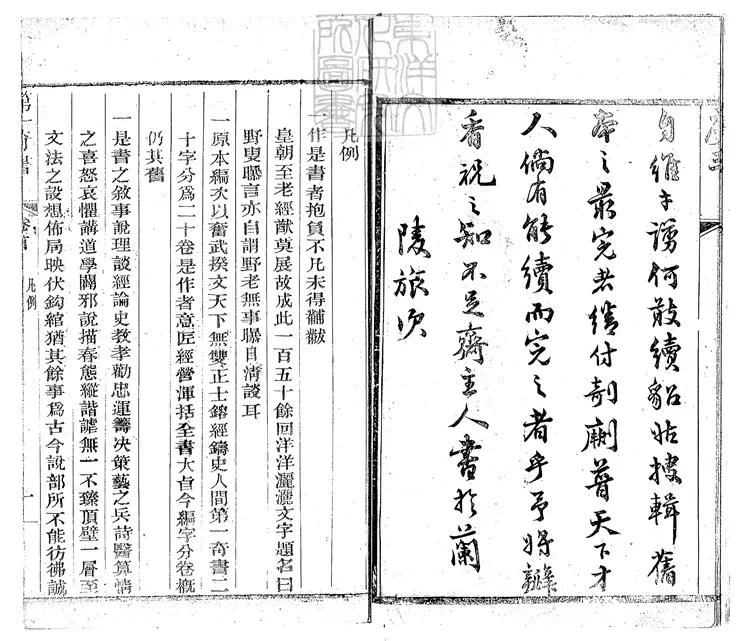 自維才譾何敢續貂姑搜輯舊
本之最完者繕付剞劂普天下才
人倘有能續而完之者乎予將瓣
香祝之知不足齋主人書於蘭
陵旅次
凡例
一作是書者抱負不凡未得黼黻
皇朝至老經猷莫展故成此一百五十餘回洋洋灑灑文字題名曰
野叟曝言亦自謂野老無事曝自清談耳
一原本編次以奮武揆文天下無雙正士鎔經鑄史人間第一奇書二
十字分爲二十卷是作者意匠經營渾括全書大旨今編字分卷概
仍其舊
一是書之敘事說理談經論史教孝勸忠運籌决策藝之兵詩醫算情
之喜怒哀懼講道學闢邪說描春態縱諧謔無一不臻頂壁一層至
文法之設想佈局映伏鈎綰猶其餘事爲古今說部所不能彷彿誠
第一奇書 卷首 凡例 一